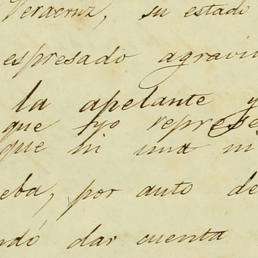 Veracruz, su estado
espresado agravi
la apelante y
que yo represe
que ni una ni
eba, por auto de
ndó dar cuenta